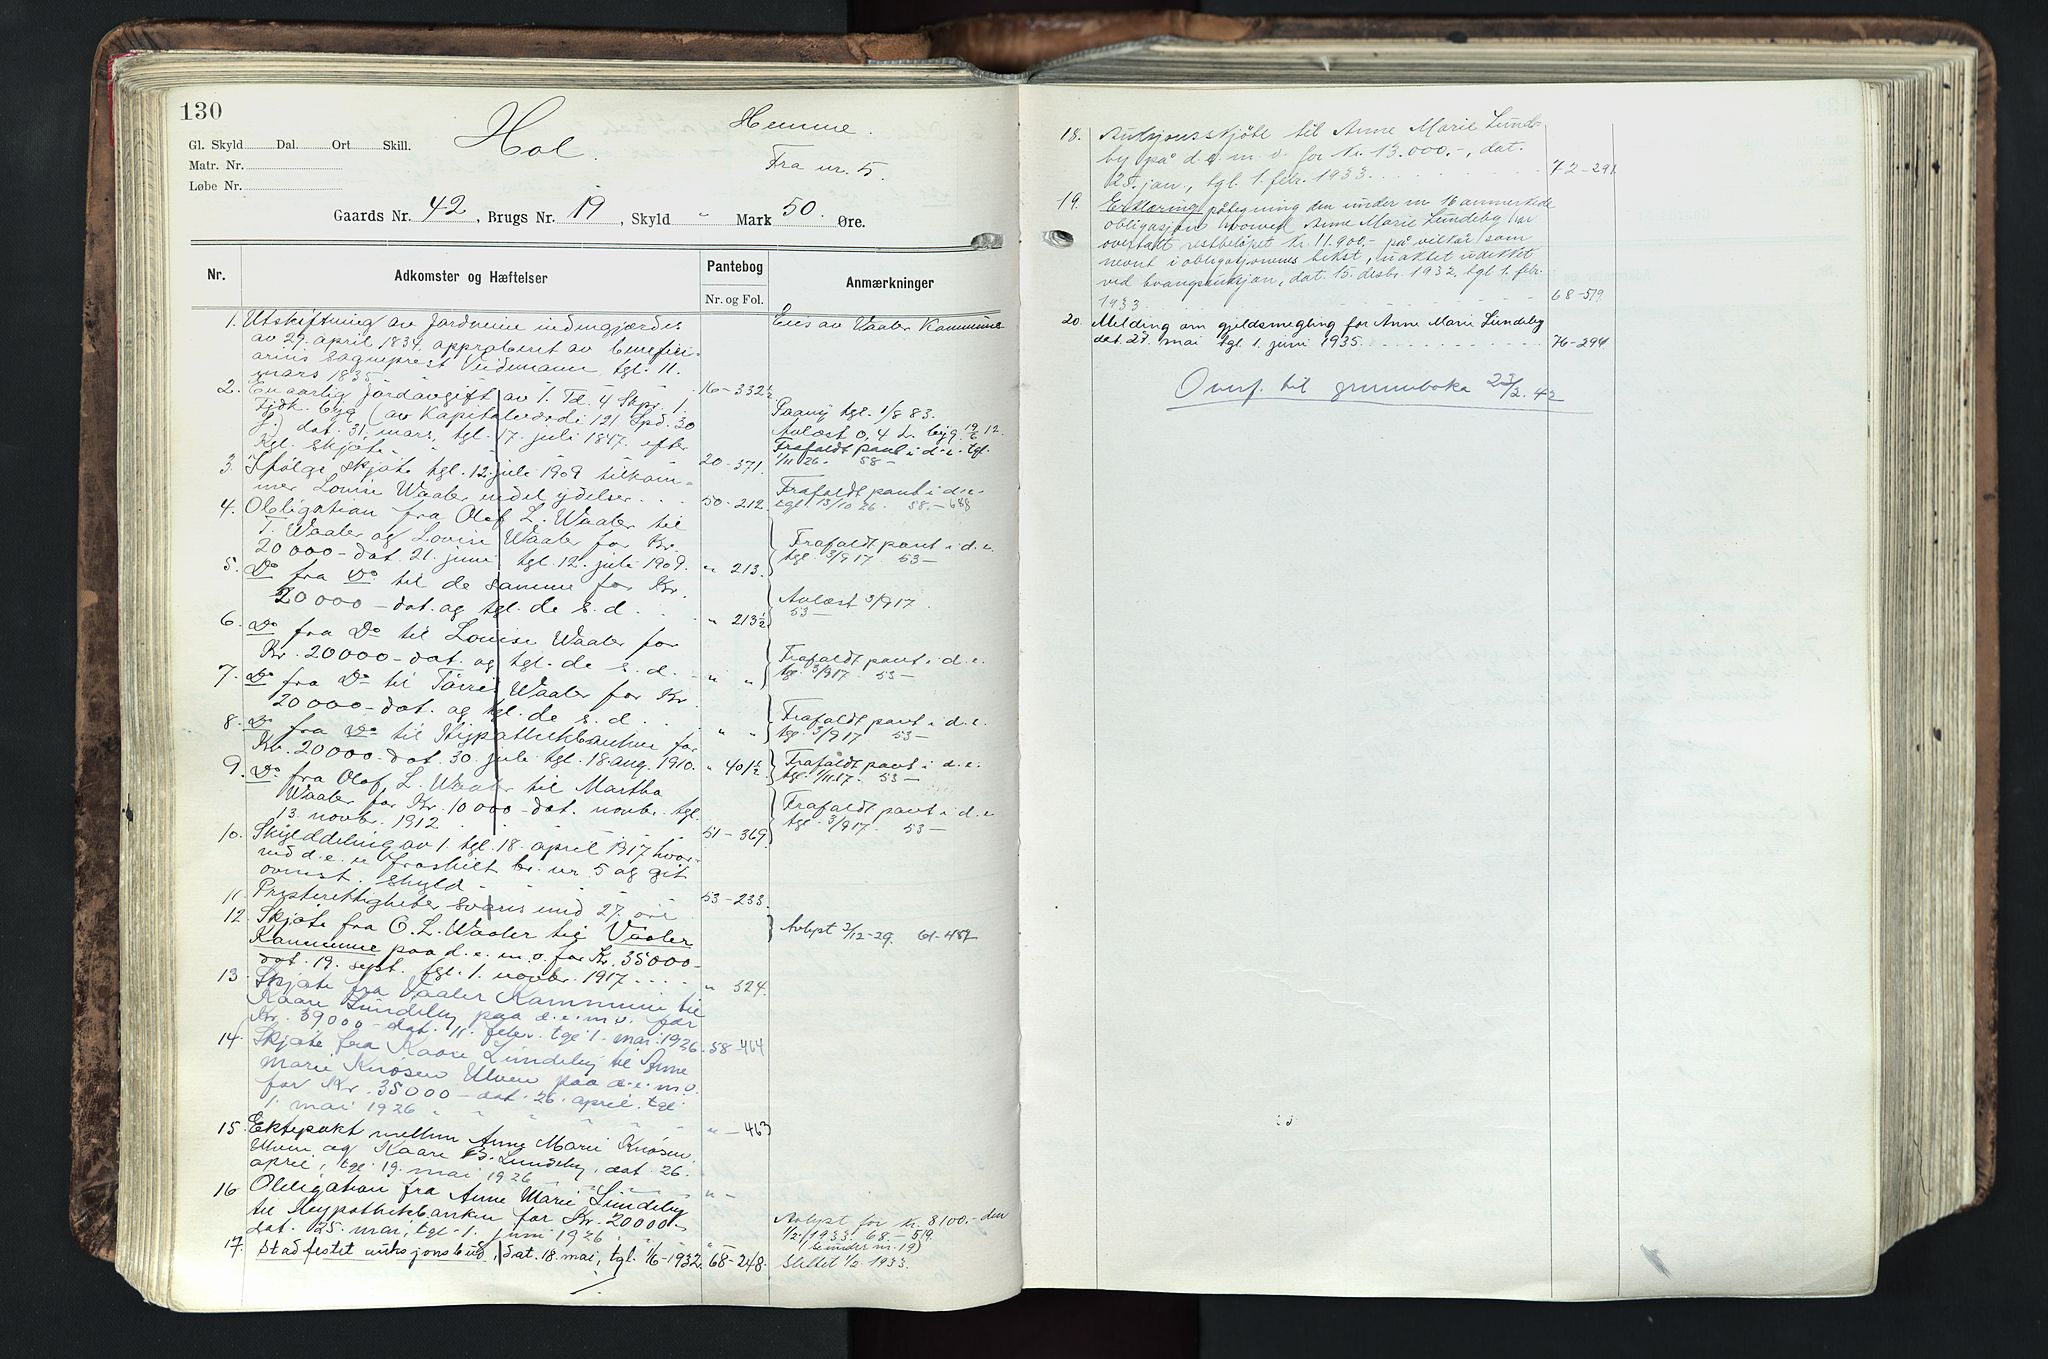 130
Hol.
Hemme.
Fra nr. 5.
Gl. Skyld Dal. Ort Skill.
Matr. Nr.
Løbe Nr.
Gaards Nr. 42, Brugs Nr. 19, Skyld " Mark 50. Øre.
Nr. Adkomster og Hæftelser Pantebog Anmærkninger
Nr. og Fol.
1. Utskiftning av Jordveiene indengjærdes Eies av Vaaler Kommune
av 29. april 1834, approberet av benefici-
arius Sogneprest Veidemann, tgl. 11.
mars 1835 16-332½
2. En aarlig jordavgift av 1 Td. 4 Skpr. 1
Fjdk. byg (av Kapitalværdi 121 Spd. 30 Paany tgl. 1/8 83.
ẞ.) dat. 31. mars, tgl. 17. juli 1847. efter Avløst 0,4 L. byg. 19/6 12.
Kgl. skjøte. 20-371. Frafaldt pant i d.e. tgl.
1/11 26. 58-
3. Ifølge skjøte tgl. 12. juli 1909 tilkom-
mer Lovise Waaler endel ydelser. . . 50-212. Frafaldt pant i d.e.
tgl. 13/10 26. 58.-688
4. Obligation fra Olof L. Waaler til
T. Waaler og Lovise Waaler for Kr. Frafaldt pant i d.e.
20 000- dat. 21. juni tgl. 12. juli 1909. " 213. tgl. 3/9 17. 53-
5. Do fra Do til de samme for Kr.
20 000- dat. og tgl. de s. d. . " 213½ Avlæst 3/9 17.
53-
6. Do fra Do til Lovise Waaler for
Kr. 20 000- dat. og tgl. de s. d. . " " Frafaldt pant i d.e.
tgl. 3/9 17. 53-
7. Do fra Do til Torris Waaler for Kr.
20 000- dat. og tgl. de s. d. . . " " Frafaldt pant i d.e.
tgl. 3/9 17 53-
8. Do fra Do til Hypothekbanken for
Kr. 20 000- dat. 30. juli tgl. 18. aug. 1910. " 401½ Frafaldt pant i d.e.
tgl. 1/11 17. 53-
9. Do fra Olof L. Waaler til Martha
Waaler for Kr. 10 000- dat. novbr. tgl. Frafaldt pant i d.e
13. novbr. 1912 51-369 tgl. 3/9 17. 53-
10. Skylddeling av 1. tgl. 18. april 1917 hvor-
ved d.e. er fraskilt br. nr. 5 og git
ovenst. skyld 53-233.
11. Presterettigheter svares med 27. øre Avlyst 2/12-29. 61-457
12. Skjøte fra O. L. Waaler til Vaaler
Kommune paa d. e. m. v. for Kr. 35 000-
dat. 19. sept. tgl. 1. novbr. 1917 . . . . " 324.
13. Skjøte fra Vaaler Kommune til
Kaare Lundeby paa d.e.m.v. for
Kr. 39000- dat. 11. febr. tgl. 1. mai 1926. 58-464
14. Skjøte fra Kaare Lundeby til Anne
Marie Knosen Ulven paa d.e.m.v.
for Kr. 35000- dat. 26. april, tgl.
1. mai 1926 " - 463
15. Ektepakt mellem Anne Marie Knosen
Ulven og Kaare Lundeby, dat. 26.
april, tgl. 19. mai 1926 " -
16. Obligation fra Anne Marie Lundeby
til Hypothekbanken for Kr. 20000- Avlyst for kr. 8100.- den
dat. 25. mai, tgl. 1. juni 1926 1/2-1933. 68.- 519.
(se under nr. 19)
17. Stadfestet auksjonsbud, dat. 18. mai, tgl. 1/6-1932. 68-248. Slettet 1/2 1933.
18. Auksjonsskjøte til Anne Marie Lunde-
by på d. e. m. v. for Kr. 13.000.-, dat.
25. jan., tgl. 1. febr. 1933. . . . 72-291
19. Erklæring påtegning den under nr 16 anmerkede
obligasjon hvorved Anne Marie Lundeby har
overtatt restbeløpet Kr. 11.900,- på vilkår som
nevnt i obligasjonenes tekst, uaktet udekket
ved tvangsauksjon, dat. 15. desbr. 1932, tgl. 1. febr.
1933. 68-519
20. Melding om gjeldsmegling for Anne Marie Lundeby
dat. 27. mai tgl. 1. juni 1935. . . . 76-294
Overf. til grunnboka 23/2. 42